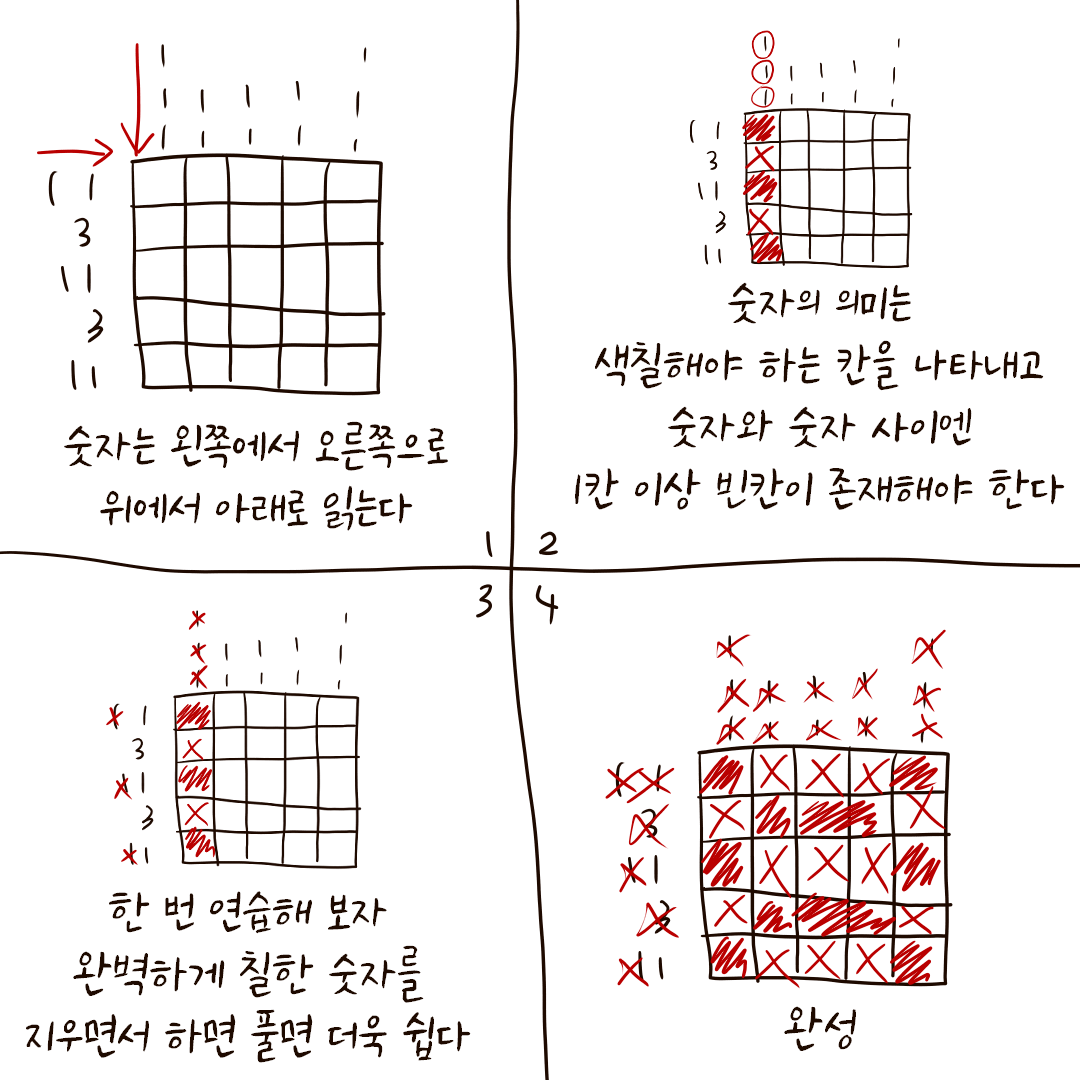 1 1
1 1 1 1 1
1 1 1 1 1
1 1
3
1 1
3
1 1
숫자는 왼쪽에서 오른쪽으로
위에서 아래로 읽는다
1
1 1
1 1 1 1 1
1 1 1 1 1
1 1
3
1 1
3
1 1
숫자의 의미는
색칠해야 하는 칸을 나타내고
숫자와 숫자 사이엔
1칸 이상 빈칸이 존재해야 한다
2
3
1 1
1 1 1 1 1
1 1 1 1 1
1 1
3
1 1
3
1 1
한 번 연습해 보자
완벽하게 칠한 숫자를
지우면서 하면 풀면 더욱 쉽다
4
1 1
1 1 1 1 1
1 1 1 1 1
1 1
3
1 1
3
1 1
완성